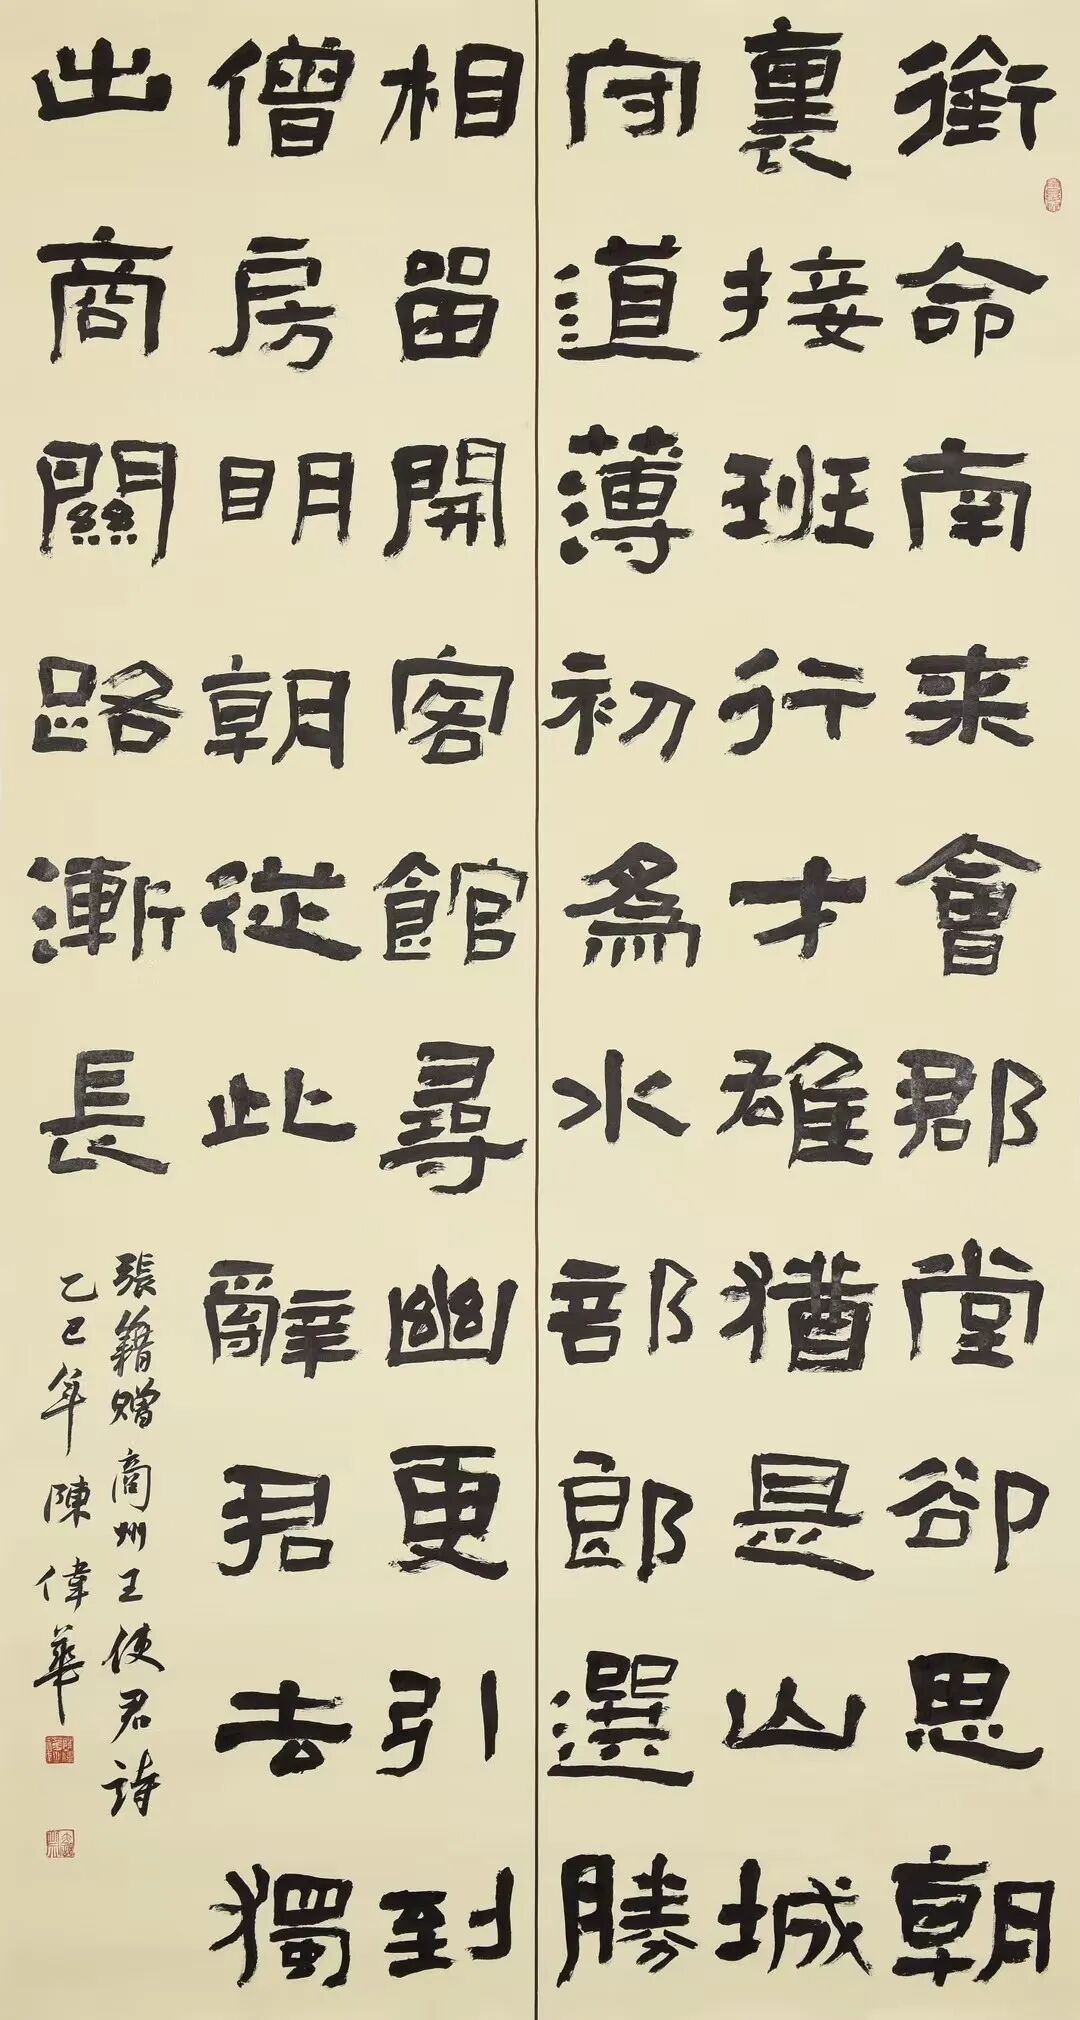 銜命南来會郡堂卻思朝
裏接班行才雄猶是山城
守道薄初爲水部郎選勝
相留開客館尋幽更引到
僧房眀朝從此辭君去獨
出商關路漸長
張籍贈商州王使君詩
乙巳年陳偉華